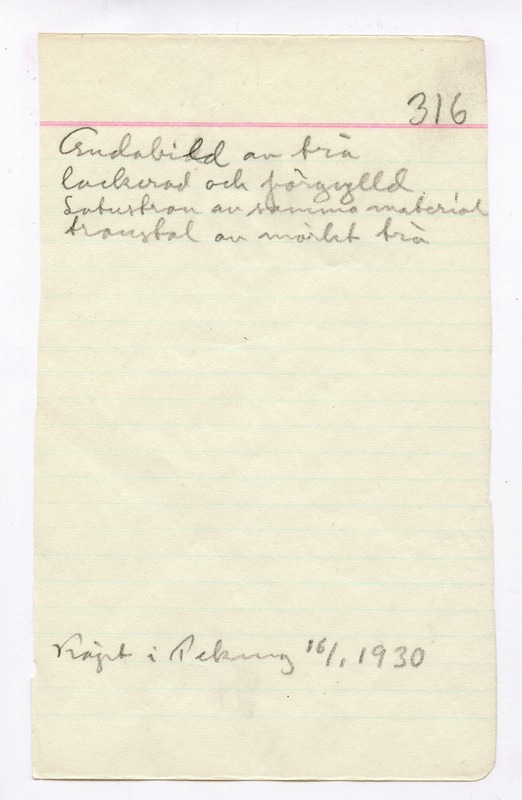 316
Gudabild av trä
lackerad och förgylld.
Lotustron av samma material
tronstol av mörkt trä
Köpt i Peking 16/1 1930